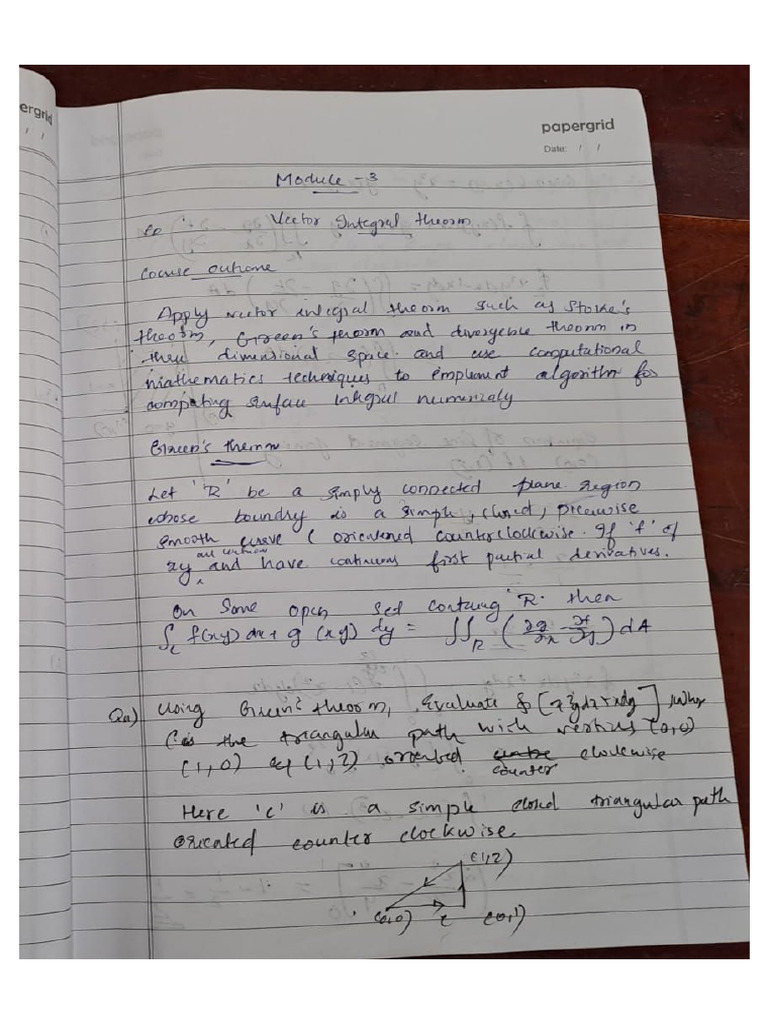 ergrid
papergrid
/ /
Date: / /
Module - 3
Vector Integral theorm
Course outcome
Apply vector integral theorm such as Stoke's
theorm, Green's theorm and divergence theorm in
dimensional space. and use computational
mathematics techniques to emplement algorithm for
computing surface integral numerically
Green's theorm
Let 'R' be a simply connected plane region
whose boundry is a simple closed, piecewise
smooth curve C oriented counterclockwise. If 'f' of
xy and have continuous first partial derivatives.
On some open set containg 'R'. then
∫c f(xy) dx + g (xy) dy = ∬R (∂g/∂x - ∂f/∂y) dA
Qa) Using Green's theorm, Evaluate ∮ [x²y dx + x dy], where
C is the triangular path with vertices (0,0)
(1,0) & (1,2) oriented clockwise
counter
Here 'c' is a simple closed triangular path
oreicated counter clockwise.
(1,2)
(0,0) c (0,1)